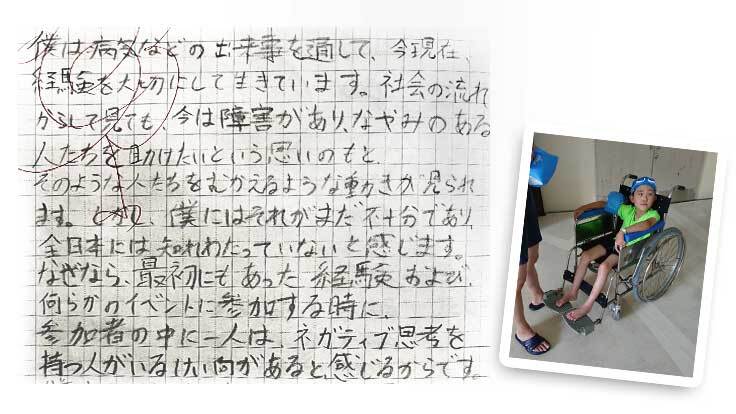 僕は病気などの出来事を通して、今現在、
経験を大切にして生きています。社会の流れ
からして見ても、今は障害があり、なやみのある
人たちを助けたいという思いのもと、
そのような人たちをむかえるような動きが見られ
ます。しかし、僕にはそれがまだ不十分であり、
全日本には知れわたっていないと感じます。
なぜなら、最初にもあった経験および、
何らかのイベントに参加する時に、
参加者の中に一人は、ネガティブ思考を
持つ人がいるけい向があると感じるからです。